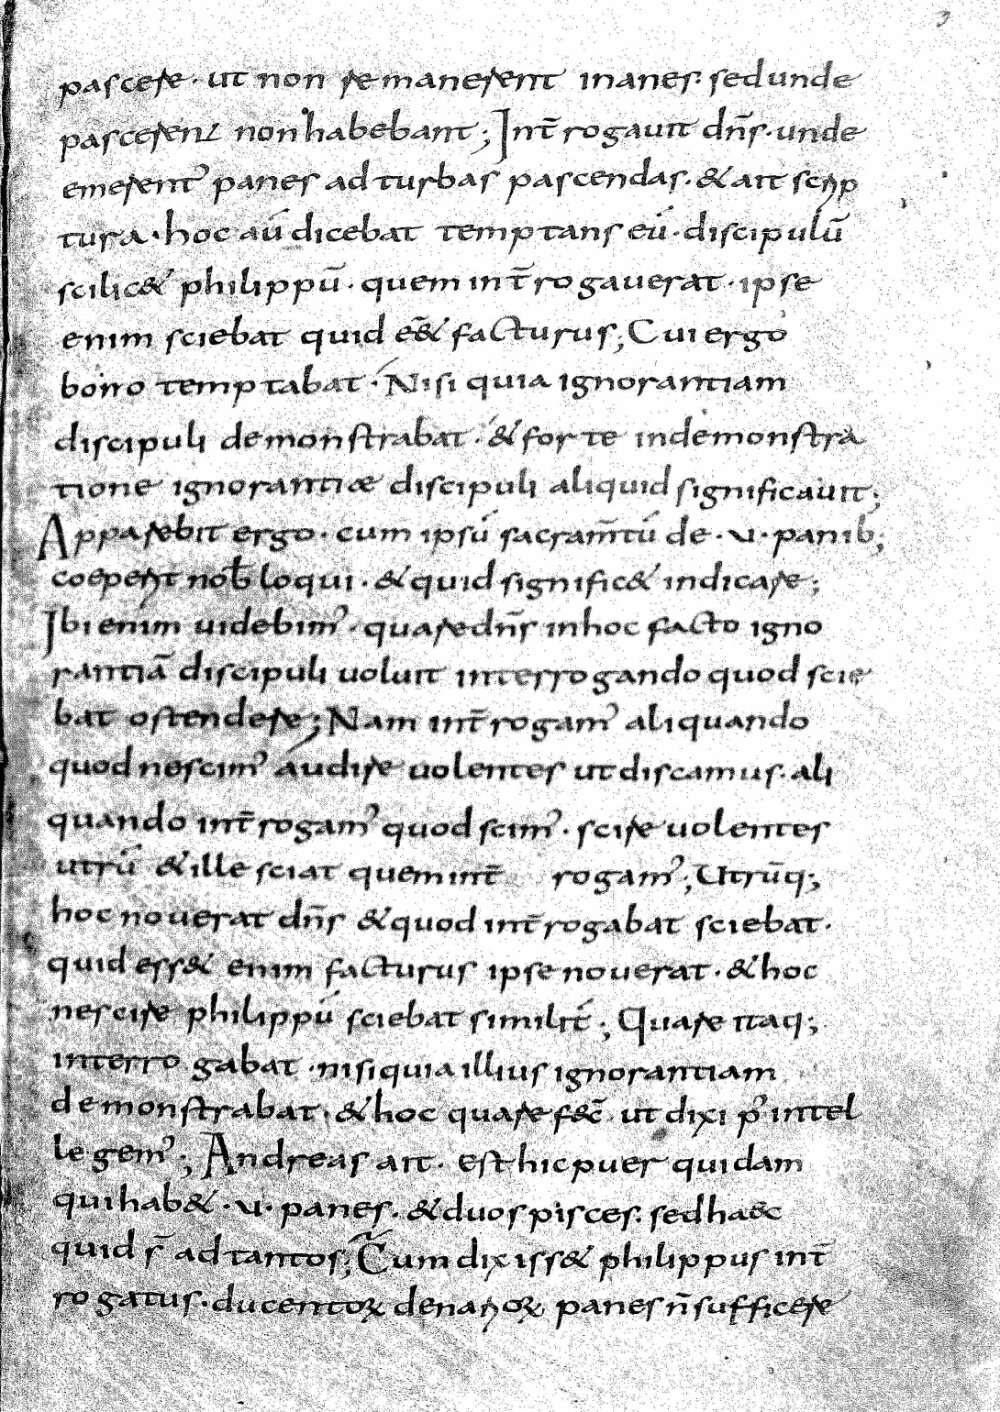 3
pascere · ut non remanerent inanes · sed unde
pascerent non habebant; Int̄rogauit dn̄s · unde
emerent᾽ panes ad turbas pascendas · & ait scrip
tura · hoc aū dicebat temptans eū · discipulū
scilic& philippū · quem int̄rogauerat · ipse
enim sciebat quid e&̄ facturus; Cui ergo
bono temptabat · Nisi quia ignorantiam
discipuli demonstrabat · & forte in demonstra
tione ignorantiæ discipuli aliquid significauit;
Apparebit ergo · cum ipsū sacram̄tū de · v · panib;
coeperit nob̄ loqui · & quid signific& indicare;
Ibi enim uidebim᾽ · quare dn̄s in hoc facto igno
rantiā discipuli uoluit interrogando quod scie
bat ostendere; Nam int̄rogam᾽ aliquando
quod nescim᾽ audire uolentes ut discamus · ali
quando int̄rogam᾽ quod scim᾽ · scire uolentes
utrū & ille sciat quem int̄ rogam᾽; Utrūq;
hoc nouerat dn̄s & quod int̄rogabat sciebat ·
quid ess& enim facturus ipse nouerat · & hoc
nescire philippū sciebat similit̄; Quare itaq;
interrogabat · nisi quia illius ignorantiam
demonstrabat · & hoc quare fec̄ ut dixi p᾽ intel
legem᾽; Andreas ait · est hic puer quidam
qui hab& · v · panes · & duos pisces · sed haec
quid s̄ ad tantos; Cum dixiss& philippus int̄
rogatus · ducentoꝝ denarioꝝ panes n̄ sufficere